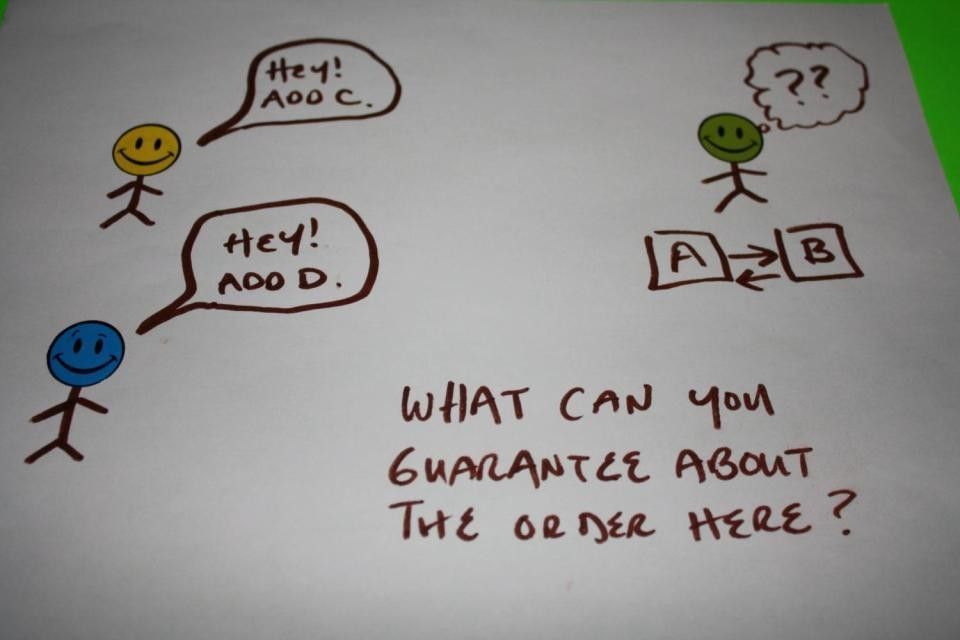 Hey!
ADD C.
??
Hey!
ADD D.
A
B
WHAT CAN YOU
GUARANTEE ABOUT
THE ORDER HERE?